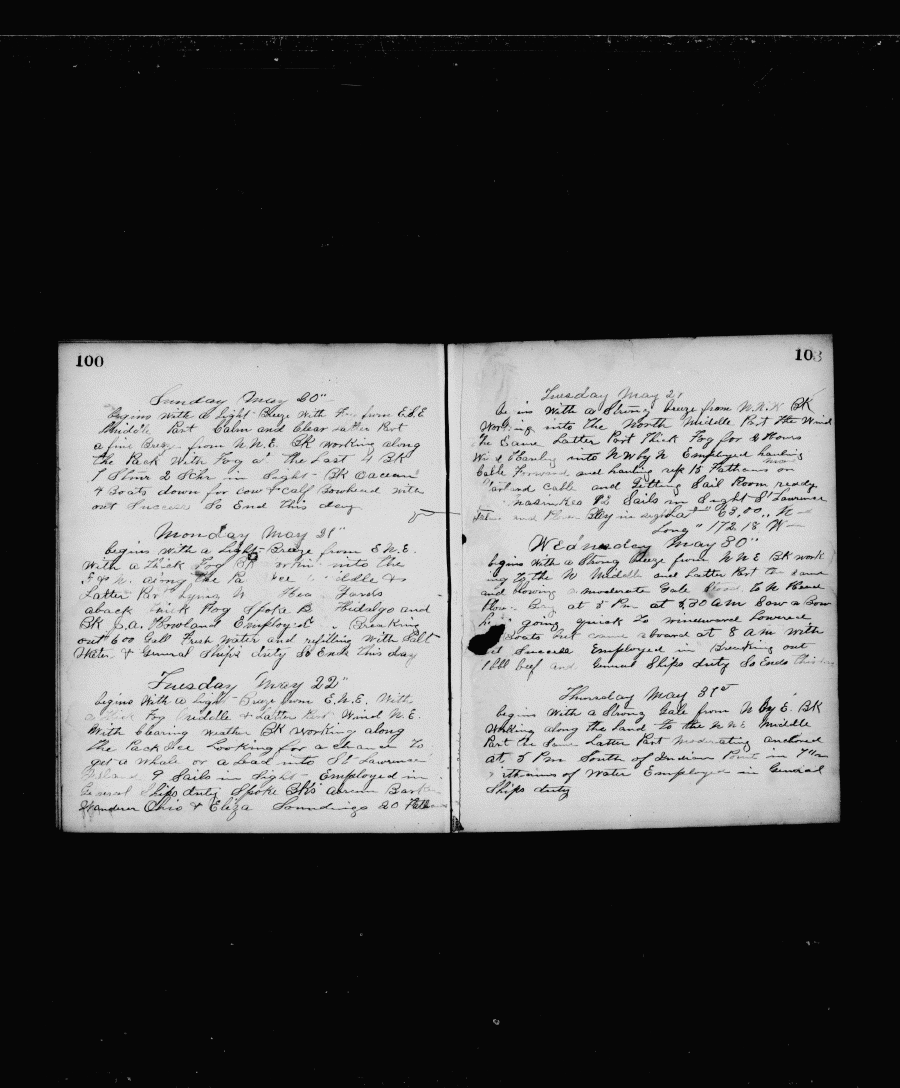 100
Sunday May 20"
begins with a light Breeze with Fog from E.S.E
Middle Part Calm and Clear Latter Part
a fine Breeze from N.N.E. BK working along
the Pack With Fog at the Last 4 BK
1 Stmr 2 Schr in Sight BK
4 Boats down for Cow & Calf Bowhead with
out Success So End this day
Monday May 21"
begins with a Light Breeze from E N.E.
With a thick Fog BK into the
along the
Latter Yards
aback thick Fog Spoke B Hidalgo and
BK J.A. Howland Employed Breaking
out 600 Gall Fresh Water and refilling with Salt
Water & General Ship's duty So Ends this day
Tuesday May 22"
begins With a Light Breeze from E.N.E. With
a thick Fog Middle & Latter Part Wind N.E.
With Clearing weather BK Working along
the Pack Ice Looking for a chance to
get a Whale or a Lead into St Lawrence
Island 9 Sails in Sight Employed in
General Ships duty Spoke BKs
Wanderer Ohio & Eliza Soundings 20
103
Tuesday May
With a Strong breeze from BK
Working into the North Middle Part the Wind
the Same Latter Part Thick Fog for 2 Hours
Wind Hauling into NW by N Employed hauling
Cable Forward and having 15 Fathoms on
Cable and Getting Sail Room ready
Sails in Sight St Lawrence
and Plover Bay in sight Lat 63,00,, N
Long" 172.18 W
Wednesday May 30"
begins With a Strong Breeze from N N E BK work
ing to the N Middle and Latter Part the same
and blowing a moderate Gale to N Head
Plover Bay at 5 Pm at 5,30 am Saw a Bow
going quick to windward Lowered
Boats but came aboard at 8 am With
out Success Employed in Breaking out
1 bbl beef and General Ships duty So Ends this day
Thursday May 31st
begins With a Strong Gale from N by E. BK
Working along the Land to the N N E Middle
Part the Same Latter Part Moderating anchored
at 5 Pm South of Indian Point in 7
Fathoms of Water Employed in General
Ships duty